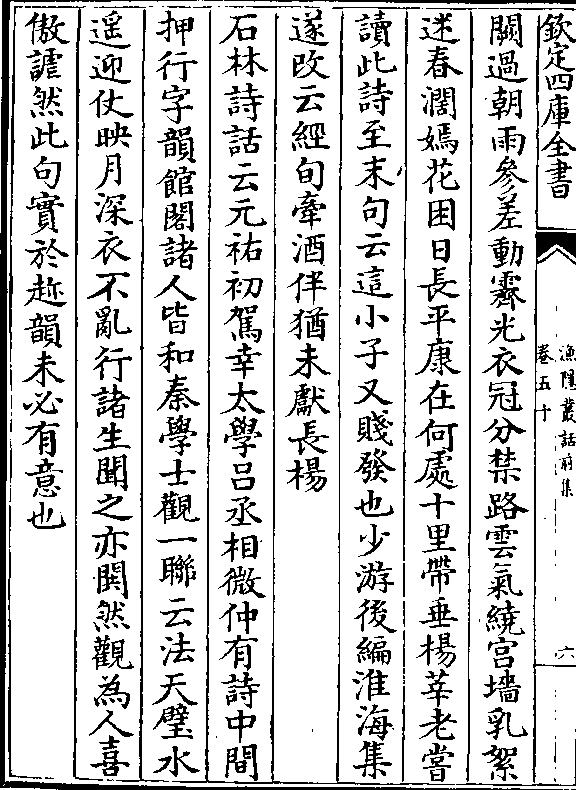 欽定四庫全書
漁隱叢話前集
卷五十
六
闕過朝雨參差動霽光衣冠分禁路雲氣繞宫墻乳絮
迷春濶嫣花困日長平康在何處十里帶垂楊莘老嘗
讀此詩至末句云這小子又賤發也少游後編淮海集
遂改云經旬牽酒伴猶未獻長楊
石林詩話云元祐初駕幸太學吕丞相微仲有詩中間
押行字韻館閣諸人皆和秦學士觀一聯云法天璧水
遥迎仗映月深衣不亂行諸生聞之亦閧然觀為人喜
傲謔然此句實於趂韻未必有意也